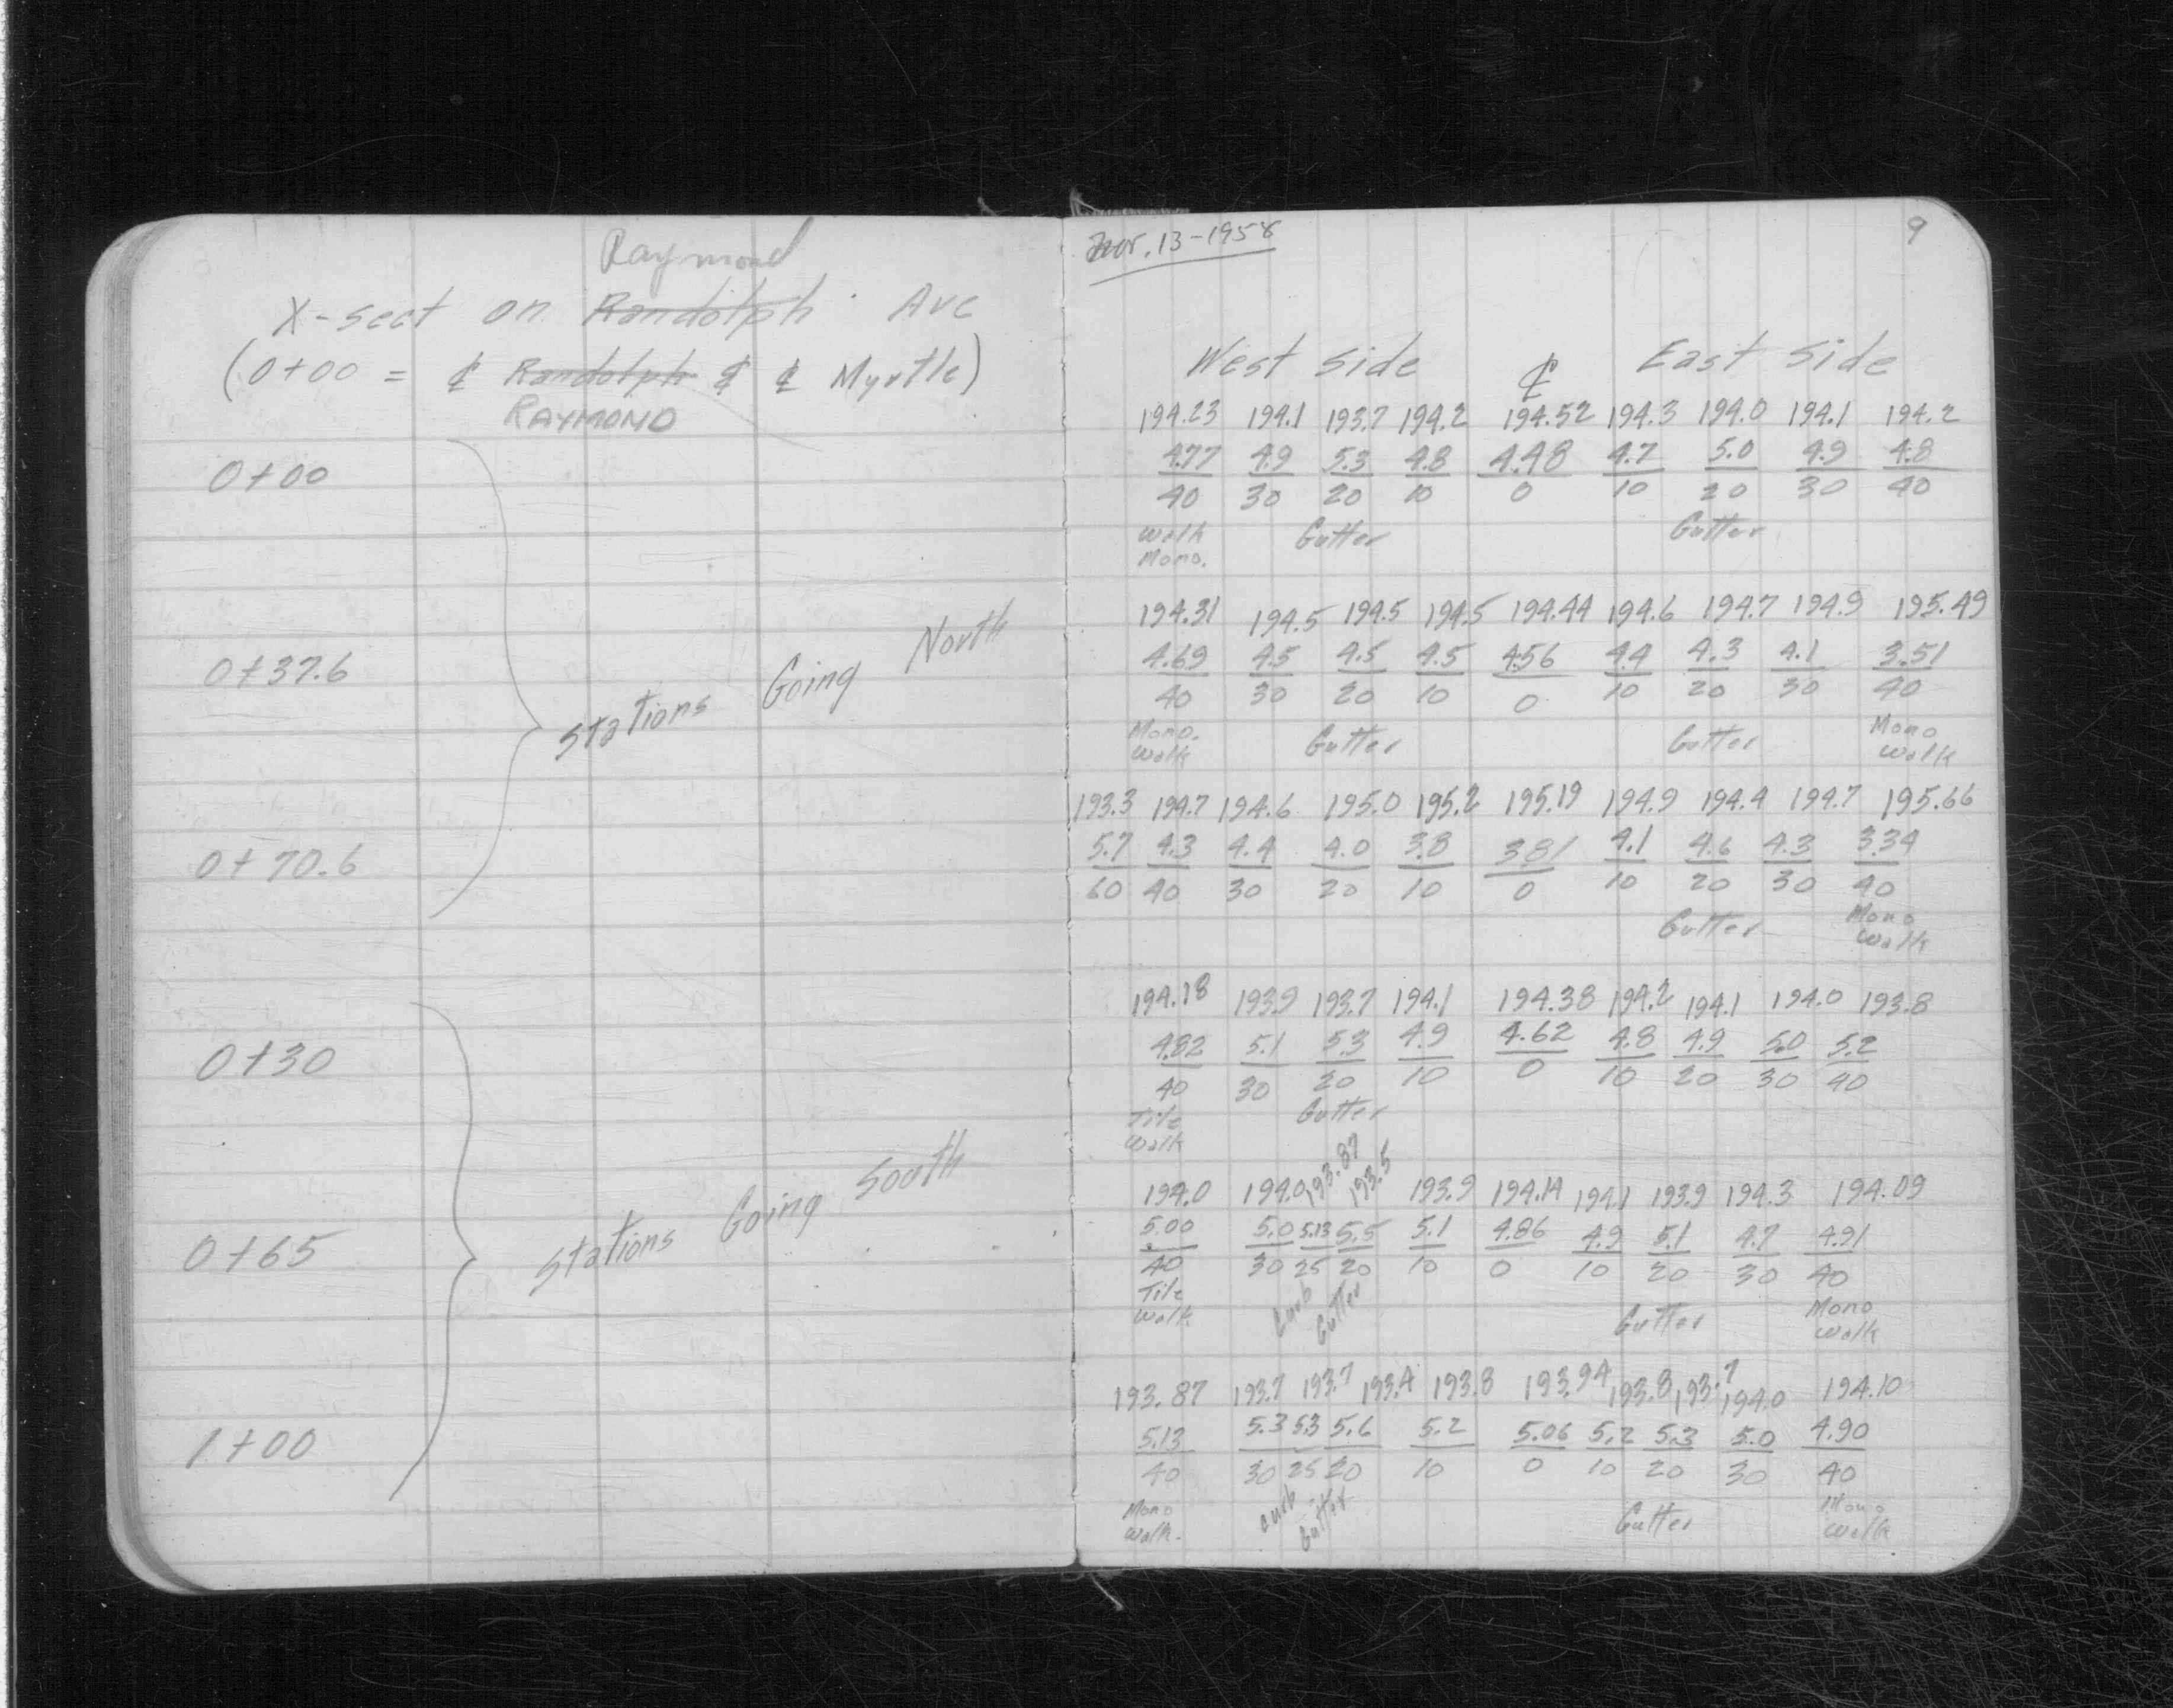 Raymond
X-sect on Randolph Ave
(0+00 = ℄ Randolph & ℄ Myrtle)
RAYMOND
0+00
0+37.6
Stations Going North
0+70.6
0+30
0+65
Stations Going South
1+00
Nov. 13-1958
9
West Side ℄ East Side
194.23 194.1 193.7 194.2 194.52 194.3 194.0 194.1 194.2
4.77 4.9 5.3 4.8 4.48 4.7 5.0 4.9 4.8
40 30 20 10 0 10 20 30 40
Walk Gutter Gutter
Mono.
194.31 194.5 194.5 194.5 194.44 194.6 194.7 194.9 195.49
4.69 4.5 4.5 4.5 4.56 4.4 4.3 4.1 3.51
40 30 20 10 0 10 20 30 40
Mono. Gutter Gutter Mono
Walk Walk
193.3 194.7 194.6 195.0 195.2 195.19 194.9 194.4 194.7 195.66
5.7 4.3 4.4 4.0 3.8 3.81 4.1 4.6 4.3 3.34
60 40 30 20 10 0 10 20 30 40
Gutter Mono
Walk
194.18 193.9 193.7 194.1 194.38 194.2 194.1 194.0 193.8
4.82 5.1 5.3 4.9 4.62 4.8 4.9 5.0 5.2
40 30 20 10 0 10 20 30 40
Tile Gutter
Walk
194.0 194.0 193.87 193.5 193.9 194.14 194.1 193.9 194.3 194.09
5.00 5.0 5.13 5.5 5.1 4.86 4.9 5.1 4.7 4.91
40 30 25 20 10 0 10 20 30 40
Tile Curb Gutter Gutter Mono
Walk Walk
193.87 193.7 193.7 193.4 193.8 193.94 193.8 193.7 194.0 194.10
5.13 5.3 5.3 5.6 5.2 5.06 5.2 5.3 5.0 4.90
40 30 25 20 10 0 10 20 30 40
Mono Curb Gutter Gutter Mono
Walk. Walk